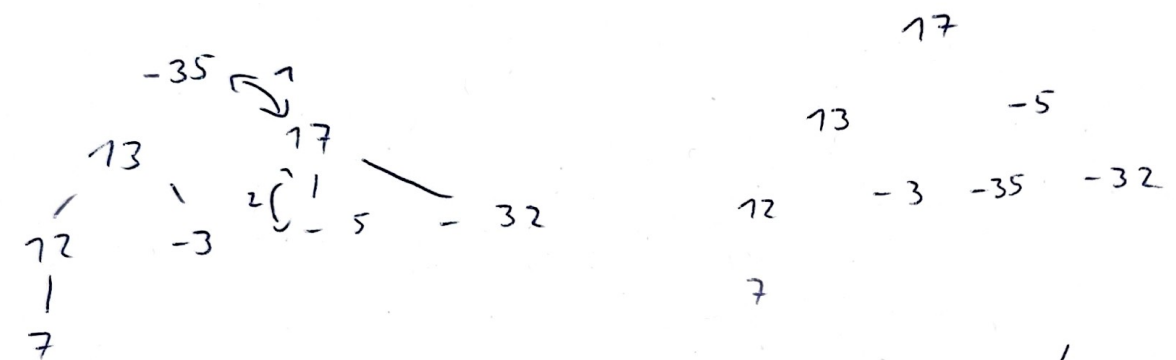 -35 1
13 17
12 -3 2 -5 -32
7
17
13 -5
12 -3 -35 -32
7